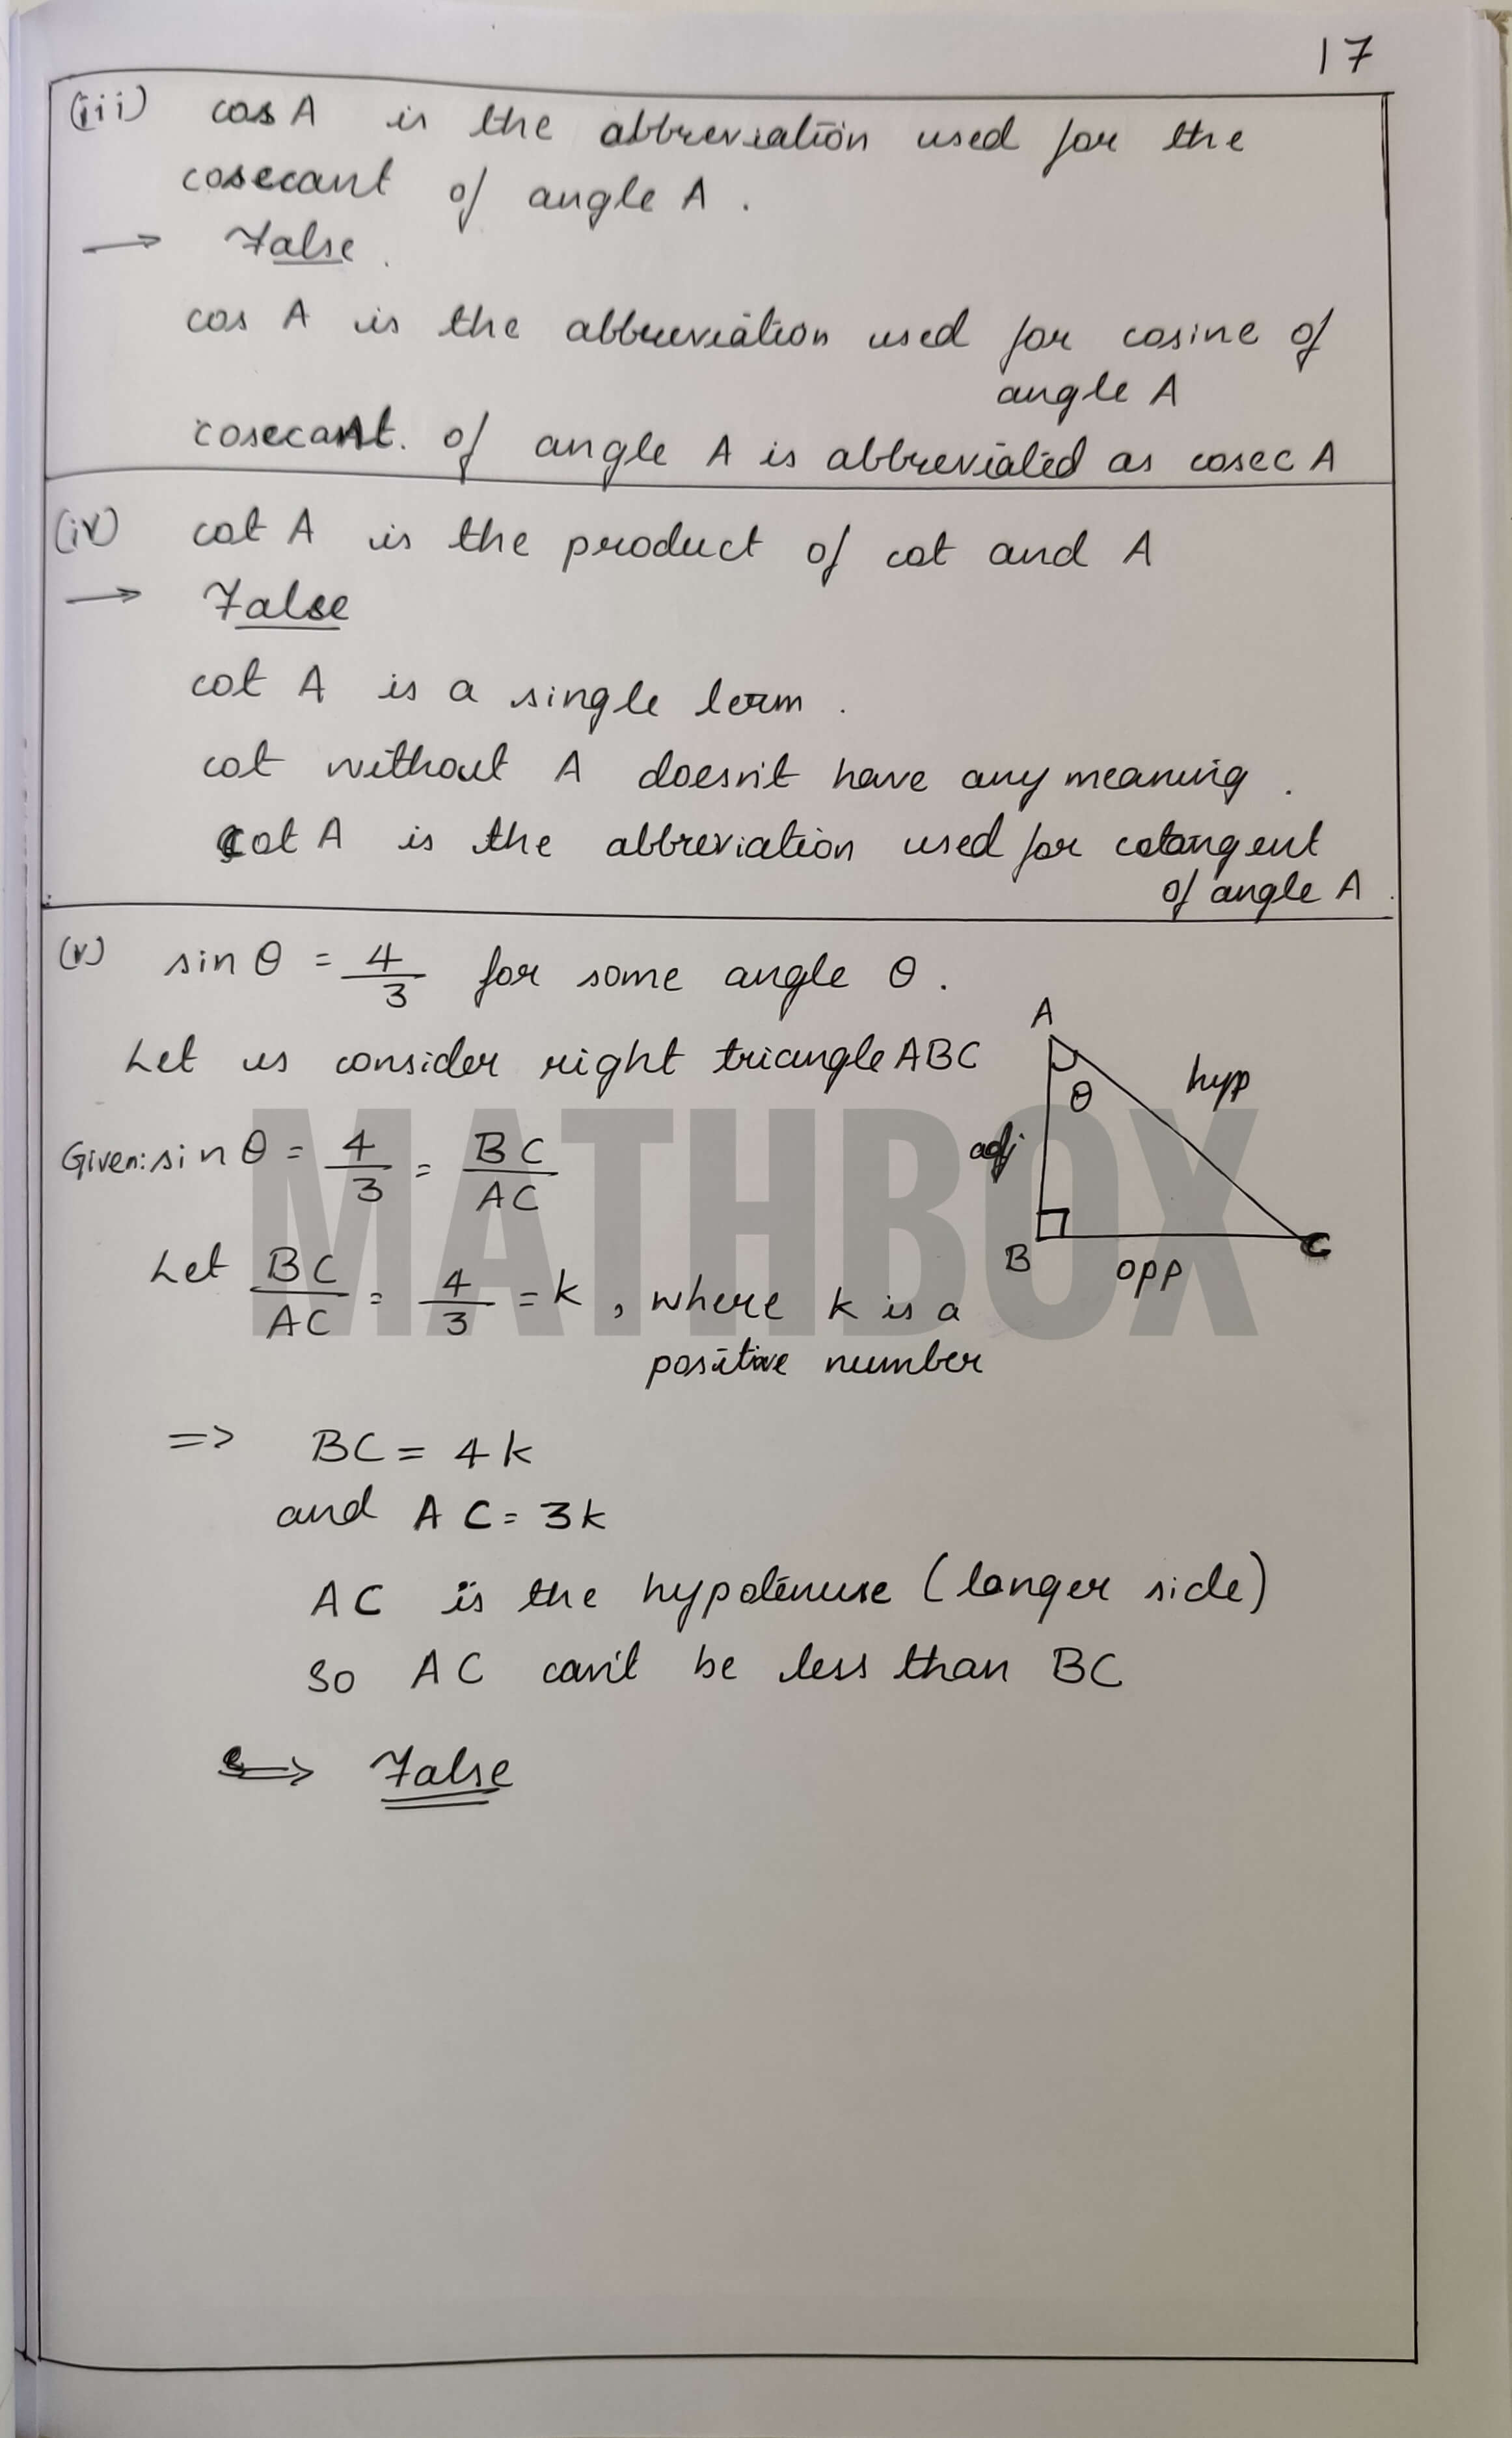 17
(iii) cos A is the abbreviation used for the
cosecant of angle A.
→ False.
cos A is the abbreviation used for cosine of
angle A
cosecant. of angle A is abbreviated as cosec A
(iv) cot A is the product of cot and A
→ False
cot A is a single term.
cot without A doesn't have any meaning.
cot A is the abbreviation used for cotangent
of angle A.
(v) sin θ = 4/3 for some angle θ.
Let us consider right triangle ABC
A
θ
hyp
adj
B
opp
C
Given: sin θ = 4/3 = BC/AC
Let BC/AC = 4/3 = k, where k is a
positive number
=> BC = 4k
and AC = 3k
AC is the hypotenuse (longer side)
so AC can't be less than BC
=> False
MATHBOX